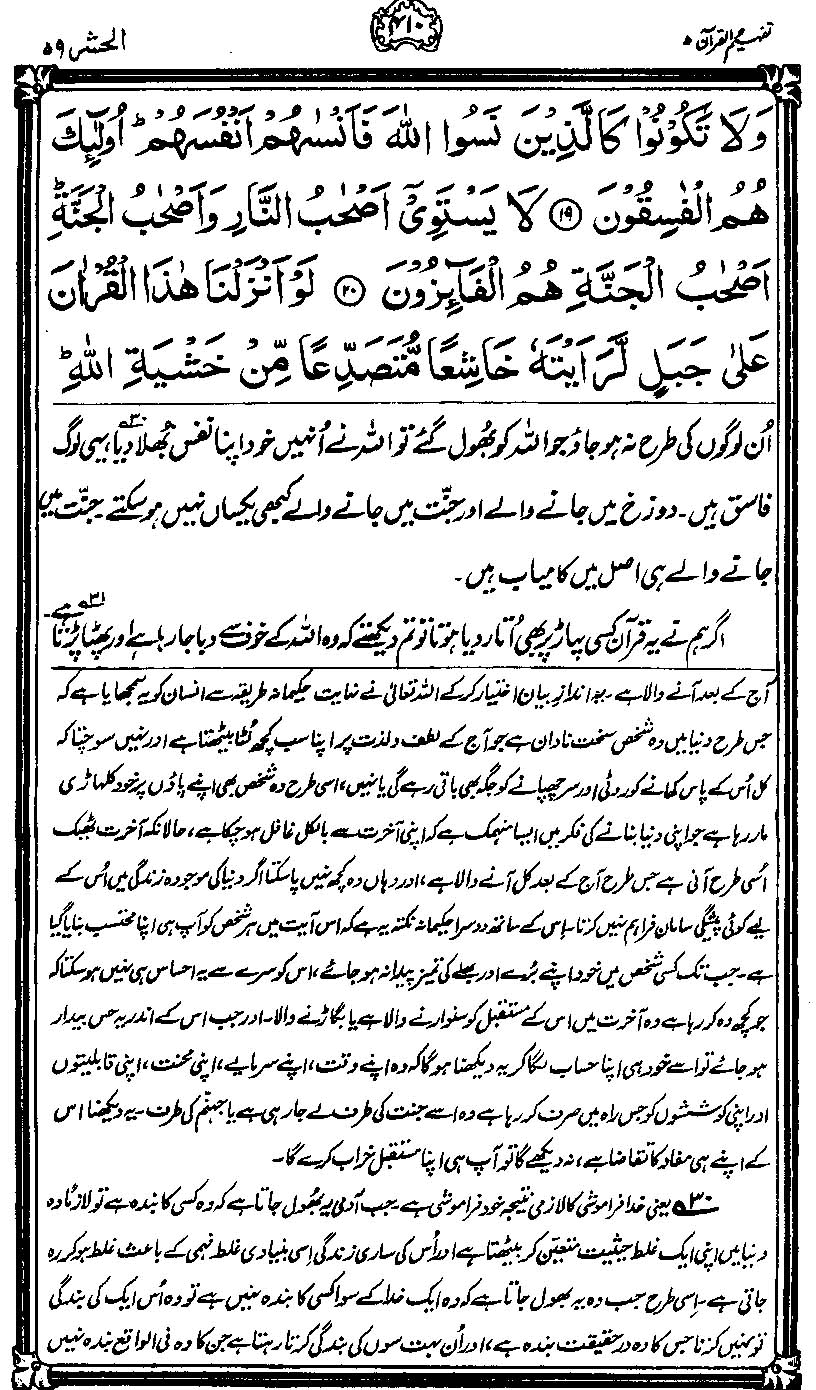 تفہیم القرآن ۵
۴۱۰
الحشر ۵۹
وَلَا تَكُوْنُوْا كَالَّذِيْنَ نَسُوا اللّٰهَ فَاَنْسٰىهُمْ اَنْفُسَهُمْ ؕ اُولٰٓئِكَ
هُمُ الْفٰسِقُوْنَ ﴿۱۹﴾ لَا يَسْتَوِيْٓ اَصْحٰبُ النَّارِ وَاَصْحٰبُ الْجَنَّةِ ؕ
اَصْحٰبُ الْجَنَّةِ هُمُ الْفَآئِزُوْنَ ﴿۲۰﴾ لَوْ اَنْزَلْنَا هٰذَا الْقُرْاٰنَ
عَلٰى جَبَلٍ لَّرَاَيْتَهٗ خَاشِعًا مُّتَصَدِّعًا مِّنْ خَشْيَةِ اللّٰهِ ؕ
اُن لوگوں کی طرح نہ ہو جاؤ جو اللہ کو بھول گئے تو اللہ نے اُنہیں خود اپنا نفس بھلا دیا،۳۰ یہی لوگ
فاسق ہیں۔ دوزخ میں جانے والے اور جنّت میں جانے والے کبھی یکساں نہیں ہو سکتے۔ جنّت میں
جانے والے ہی اصل میں کامیاب ہیں۔
اگر ہم نے یہ قرآن کسی پہاڑ پر بھی اُتار دیا ہوتا تو تم دیکھتے کہ وہ اللہ کے خوف سے دبا جا رہا ہے اور پھٹا پڑتا ہے۔۳۱
آج کے بعد آنے والا ہے۔ یہ اندازِ بیان اختیار کر کے اللہ تعالیٰ نے نہایت حکیمانہ طریقہ سے انسان کو یہ سمجھایا ہے کہ
جس طرح دنیا میں وہ شخص سخت نادان ہے جو آج کے لطف و لذت پر اپنا سب کچھ لٹا بیٹھتا ہے اور نہیں سوچتا کہ
کل اُس کے پاس کھانے کو روٹی اور سر چھپانے کو جگہ بھی باقی رہے گی یا نہیں، اسی طرح وہ شخص بھی اپنے پاؤں پر خود کلہاڑی
مار رہا ہے جو اپنی دنیا بنانے کی فکر میں ایسا منہمک ہے کہ اپنی آخرت سے بالکل غافل ہو چکا ہے، حالانکہ آخرت ٹھیک
اُسی طرح آنی ہے جس طرح آج کے بعد کل آنے والا ہے، اور وہاں وہ کچھ نہیں پا سکتا اگر دنیا کی موجودہ زندگی میں اُس کے
لیے کوئی پیشگی سامان فراہم نہیں کرتا۔ اِس کے ساتھ دوسرا حکیمانہ نکتہ یہ ہے کہ اس آیت میں ہر شخص کو آپ ہی اپنا محتسب بنایا گیا
ہے۔ جب تک کسی شخص میں خود اپنے بُرے اور بھلے کی تمیز پیدا نہ ہو جائے، اس کو سرے سے یہ احساس ہی نہیں ہو سکتا کہ
جو کچھ وہ کر رہا ہے وہ آخرت میں اس کے مستقبل کو سنوارنے والا ہے یا بگاڑنے والا۔ اور جب اس کے اندر یہ حس بیدار
ہو جائے تو اسے خود ہی اپنا حساب لگا کر یہ دیکھنا ہوگا کہ وہ اپنے وقت، اپنے سرمایے، اپنی محنت، اپنی قابلیتوں
اور اپنی کوششوں کو جس راہ میں صرف کر رہا ہے وہ اسے جنت کی طرف لے جا رہی ہے یا جہنّم کی طرف۔ یہ دیکھنا اس
کے اپنے ہی مفاد کا تقاضا ہے، نہ دیکھے گا تو آپ ہی اپنا مستقبل خراب کرے گا۔
۳۰؎ یعنی خدا فراموشی کا لازمی نتیجہ خود فراموشی ہے۔ جب آدمی یہ بھول جاتا ہے کہ وہ کسی کا بندہ ہے تو لازمًا وہ
دنیا میں اپنی ایک غلط حیثیت متعین کر بیٹھتا ہے اور اُس کی ساری زندگی اِسی بنیادی غلط فہمی کے باعث غلط ہو کر رہ
جاتی ہے۔ اِسی طرح جب وہ یہ بھول جاتا ہے کہ وہ ایک خدا کے سوا کسی کا بندہ نہیں ہے تو وہ اُس ایک کی بندگی
تو نہیں کرتا جس کا وہ در حقیقت بندہ ہے، اور اُن بہت سوں کی بندگی کرتا رہتا ہے جن کا وہ فی الواقع بندہ نہیں